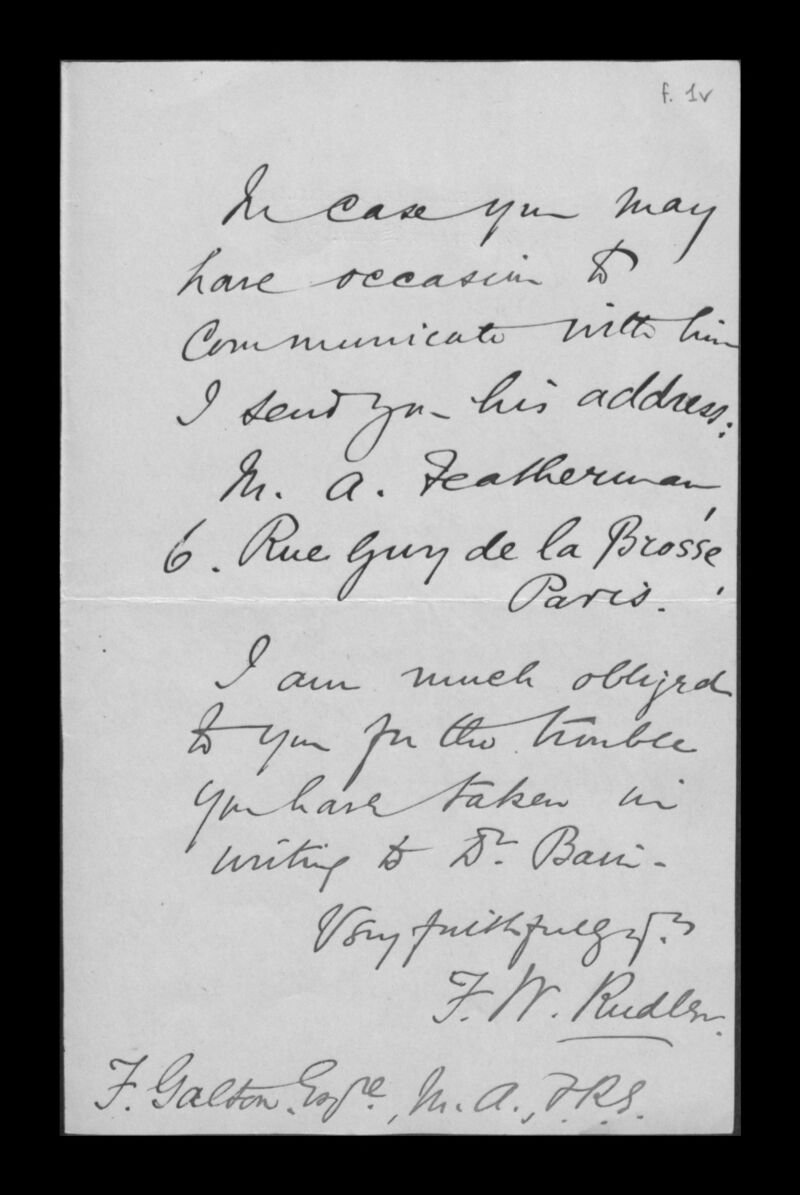 f. 1v
In case you may
have occasion to
communicate with him
I send you his address:
M. A. Featherman,
6. Rue Guy de la Brosse,
Paris.
I am much obliged
to you for the trouble
you have taken in
writing to Dr. Bain.
Very faithfully yrs
F. W. Rudler.
F. Galton Esqre, M.A., F.R.S.